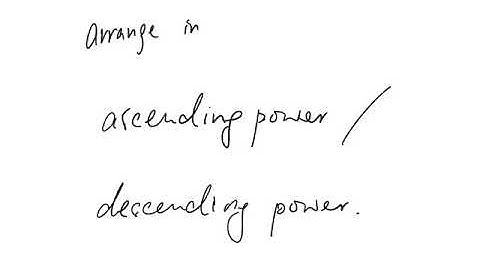 arrange in
ascending power /
descending power.